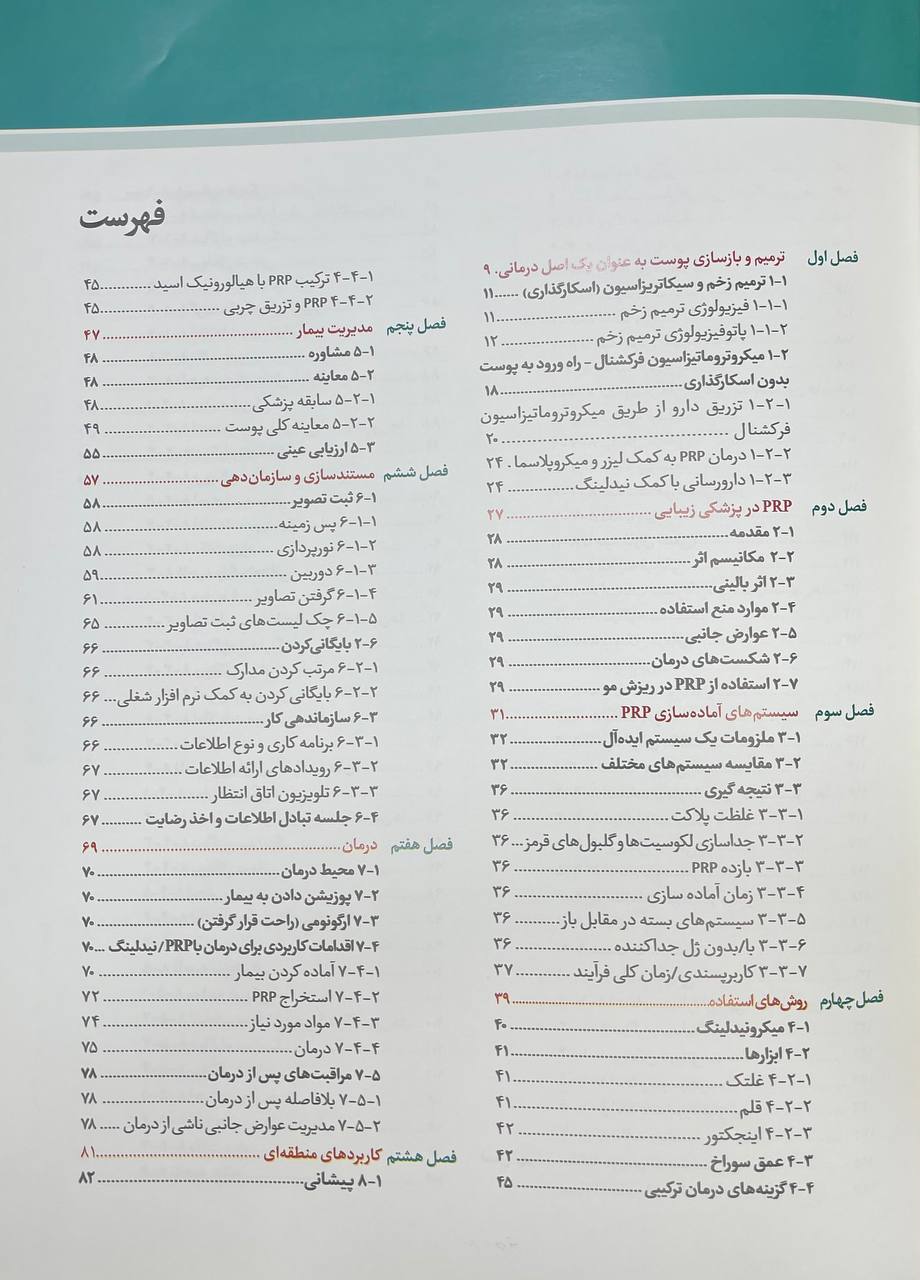 فهرست
فصل اول ترمیم و بازسازی پوست به عنوان یک اصل درمانی. ۹
۱-۱ ترمیم زخم و سیکاتریزاسیون (اسکارگذاری) ...... ۱۱
۱-۱-۱ فیزیولوژی ترمیم زخم ...... ۱۱
۱-۱-۲ پاتوفیزیولوژی ترمیم زخم ...... ۱۲
۱-۲ میکروتروماتیزاسیون فرکشنال – راه ورود به پوست
بدون اسکارگذاری ...... ۱۸
۱-۲-۱ تزریق دارو از طریق میکروتروماتیزاسیون
فرکشنال ...... ۲۰
۱-۲-۲ درمان PRP به کمک لیزر و میکروپلاسما . ۲۴
۱-۲-۳ دارورسانی با کمک نیدلینگ ...... ۲۴
فصل دوم PRP در پزشکی زیبایی ...... ۲۷
۲-۱ مقدمه ...... ۲۸
۲-۲ مکانیسم اثر ...... ۲۸
۲-۳ اثر بالینی ...... ۲۹
۲-۴ موارد منع استفاده ...... ۲۹
۲-۵ عوارض جانبی ...... ۲۹
۲-۶ شکست‌های درمان ...... ۲۹
۲-۷ استفاده از PRP در ریزش مو ...... ۲۹
فصل سوم سیستم‌های آماده‌سازی PRP ...... ۳۱
۳-۱ ملزومات یک سیستم ایده‌آل ...... ۳۲
۳-۲ مقایسه سیستم‌های مختلف ...... ۳۲
۳-۳ نتیجه گیری ...... ۳۶
۳-۳-۱ غلظت پلاکت ...... ۳۶
۳-۳-۲ جداسازی لکوسیت‌ها و گلبول‌های قرمز ... ۳۶
۳-۳-۳ بازده PRP ...... ۳۶
۳-۳-۴ زمان آماده سازی ...... ۳۶
۳-۳-۵ سیستم‌های بسته در مقابل باز ...... ۳۶
۳-۳-۶ با/بدون ژل جداکننده ...... ۳۶
۳-۳-۷ کاربرپسندی/زمان کلی فرآیند ...... ۳۷
فصل چهارم روش‌های استفاده ...... ۳۹
۴-۱ میکرونیدلینگ ...... ۴۰
۴-۲ ابزارها ...... ۴۱
۴-۲-۱ غلتک ...... ۴۱
۴-۲-۲ قلم ...... ۴۱
۴-۲-۳ اینجکتور ...... ۴۲
۴-۳ عمق سوراخ ...... ۴۲
۴-۴ گزینه‌های درمان ترکیبی ...... ۴۵
۴-۴-۱ ترکیب PRP با هیالورونیک اسید ...... ۴۵
۴-۴-۲ PRP و تزریق چربی ...... ۴۵
فصل پنجم مدیریت بیمار ...... ۴۷
۵-۱ مشاوره ...... ۴۸
۵-۲ معاینه ...... ۴۸
۵-۲-۱ سابقه پزشکی ...... ۴۸
۵-۲-۲ معاینه کلی پوست ...... ۴۹
۵-۳ ارزیابی عینی ...... ۵۵
فصل ششم مستندسازی و سازمان‌دهی ...... ۵۷
۶-۱ ثبت تصویر ...... ۵۸
۶-۱-۱ پس زمینه ...... ۵۸
۶-۱-۲ نورپردازی ...... ۵۸
۶-۱-۳ دوربین ...... ۵۹
۶-۱-۴ گرفتن تصاویر ...... ۶۱
۶-۱-۵ چک لیست‌های ثبت تصاویر ...... ۶۵
۲-۶ بایگانی‌کردن ...... ۶۶
۶-۲-۱ مرتب کردن مدارک ...... ۶۶
۶-۲-۲ بایگانی کردن به کمک نرم افزار شغلی ... ۶۶
۶-۳ سازماندهی کار ...... ۶۶
۶-۳-۱ برنامه کاری و نوع اطلاعات ...... ۶۶
۶-۳-۲ رویدادهای ارائه اطلاعات ...... ۶۷
۶-۳-۳ تلویزیون اتاق انتظار ...... ۶۷
۶-۴ جلسه تبادل اطلاعات و اخذ رضایت ...... ۶۷
فصل هفتم درمان ...... ۶۹
۷-۱ محیط درمان ...... ۷۰
۷-۲ پوزیشن دادن به بیمار ...... ۷۰
۷-۳ ارگونومی (راحت قرار گرفتن) ...... ۷۰
۷-۴ اقدامات کاربردی برای درمان با PRP/ نیدلینگ ... ۷۰
۷-۴-۱ آماده کردن بیمار ...... ۷۰
۷-۴-۲ استخراج PRP ...... ۷۲
۷-۴-۳ مواد مورد نیاز ...... ۷۴
۷-۴-۴ درمان ...... ۷۵
۷-۵ مراقبت‌های پس از درمان ...... ۷۸
۷-۵-۱ بلافاصله پس از درمان ...... ۷۸
۷-۵-۲ مدیریت عوارض جانبی ناشی از درمان ..... ۷۸
فصل هشتم کاربردهای منطقه‌ای ...... ۸۱
۸-۱ پیشانی ...... ۸۲